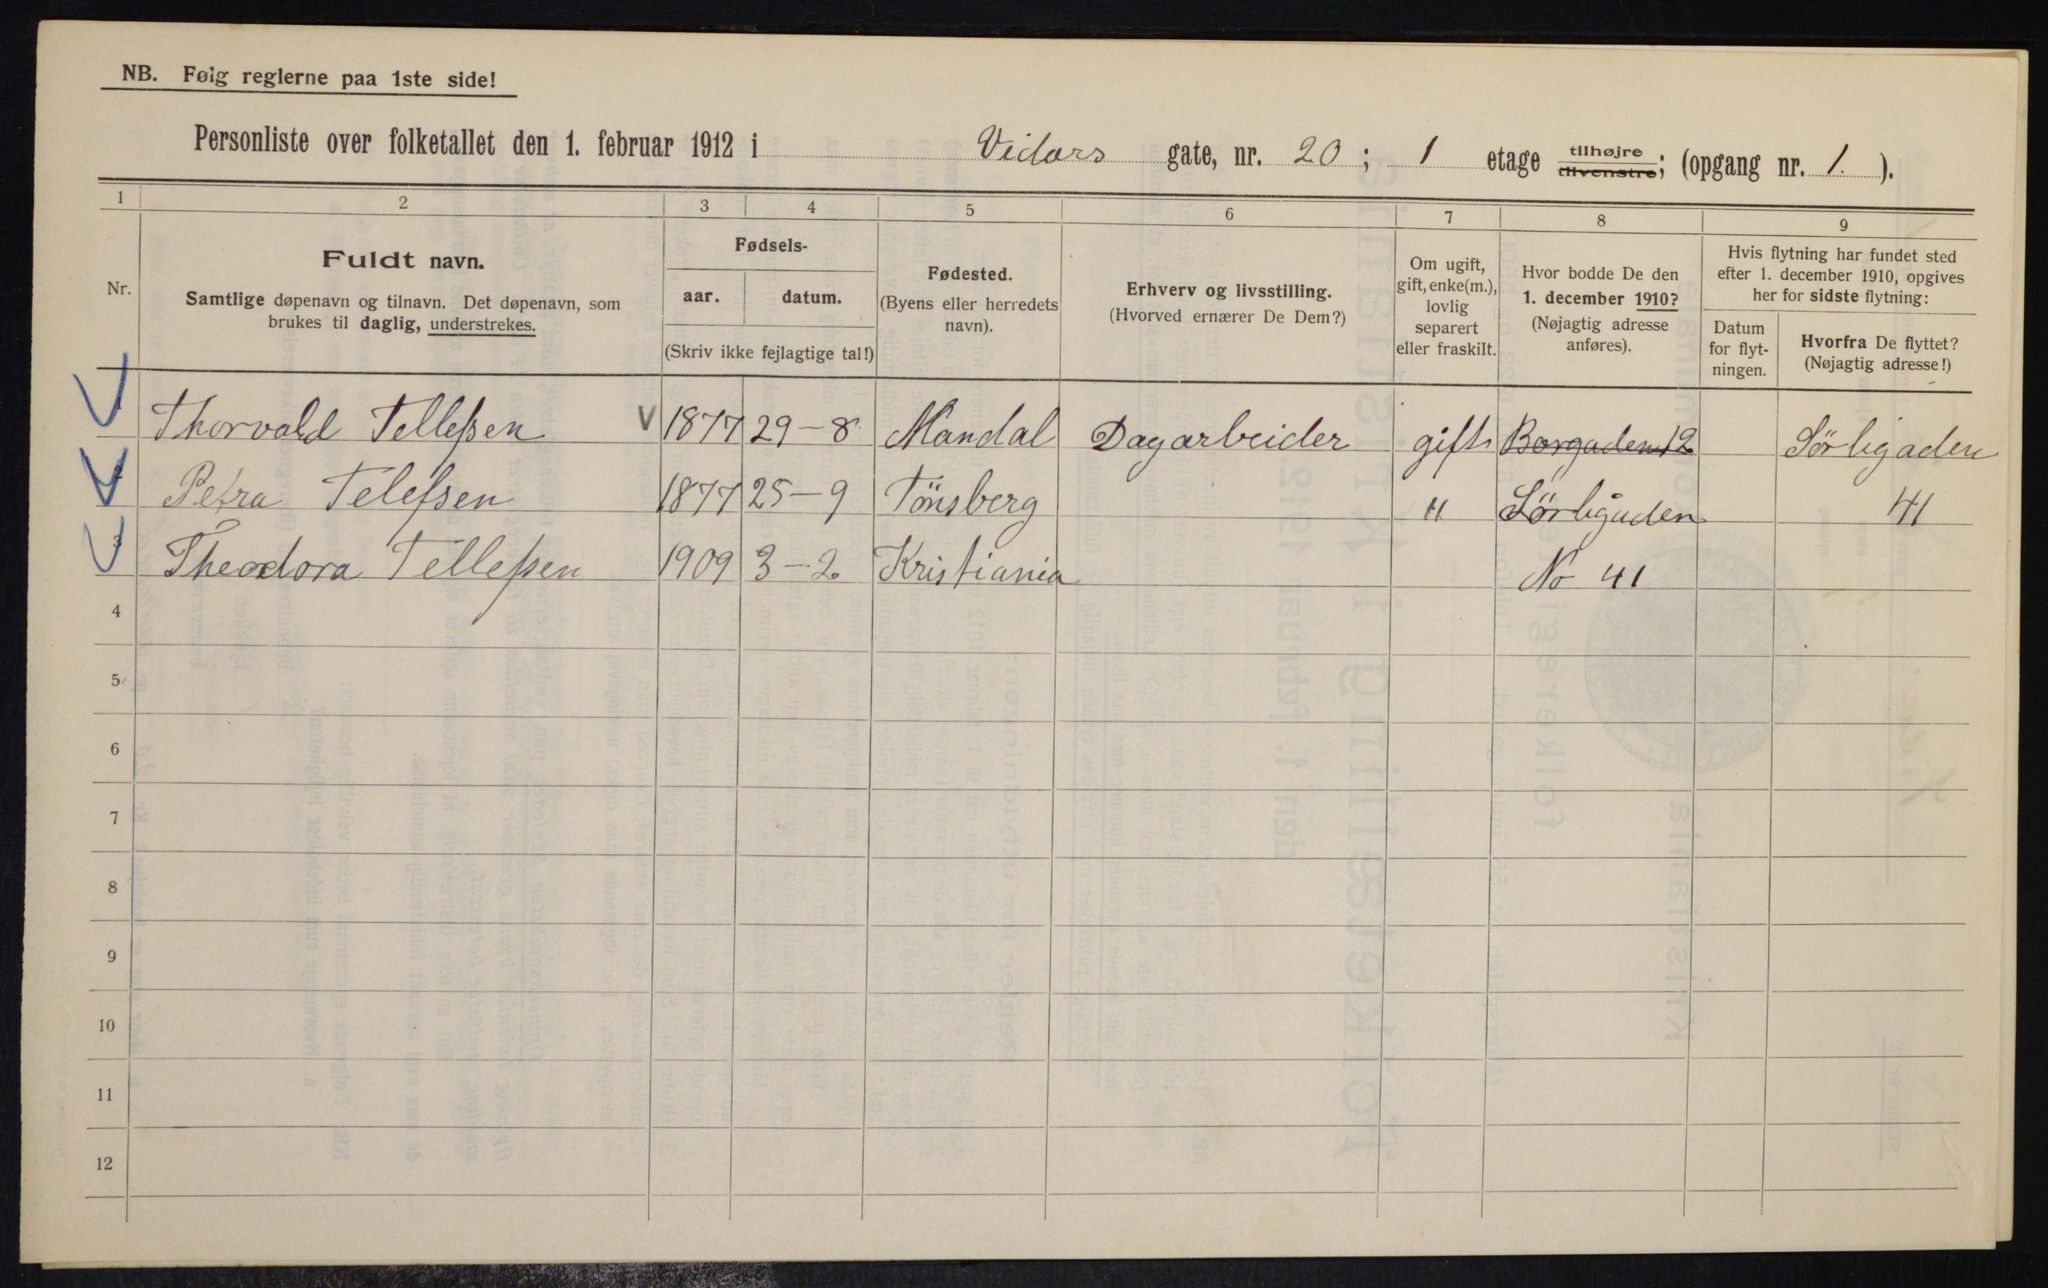 NB. Følg reglerne paa 1ste side!
Personliste over folketallet den 1. februar 1912 i Vidars gate, nr. 20; 1 etage tilhøjre tilvenstre; (opgang nr. 1.).
1 2 3 4 5 6 7 8 9
Nr.
Fuldt navn.
Samtlige døpenavn og tilnavn. Det døpenavn, som
brukes til daglig, understrekes.
Fødsels-
aar. datum.
(Skriv ikke fejlagtige tal!)
Fødested.
(Byens eller herredets
navn).
Erhverv og livsstilling.
(Hvorved ernærer De Dem?)
Om ugift,
gift, enke(m.),
lovlig
separert
eller fraskilt.
Hvor bodde De den
1. december 1910?
(Nøjagtig adresse
anføres).
Hvis flytning har fundet sted
efter 1. december 1910, opgives
her for sidste flytning:
Datum
for flyt-
ningen.
Hvorfra De flyttet?
(Nøjagtig adresse!)
1 Thorvald Tellefsen V 1877 29-8 Mandal Dagarbeider gift Borgaden 12 Sørligaden
2 Petra Telefsen 1877 25-9 Tönsberg " Sørligaden 41
3 Theodora Tellefsen 1909 3-2 Kristiania No 41
4
5
6
7
8
9
10
11
12